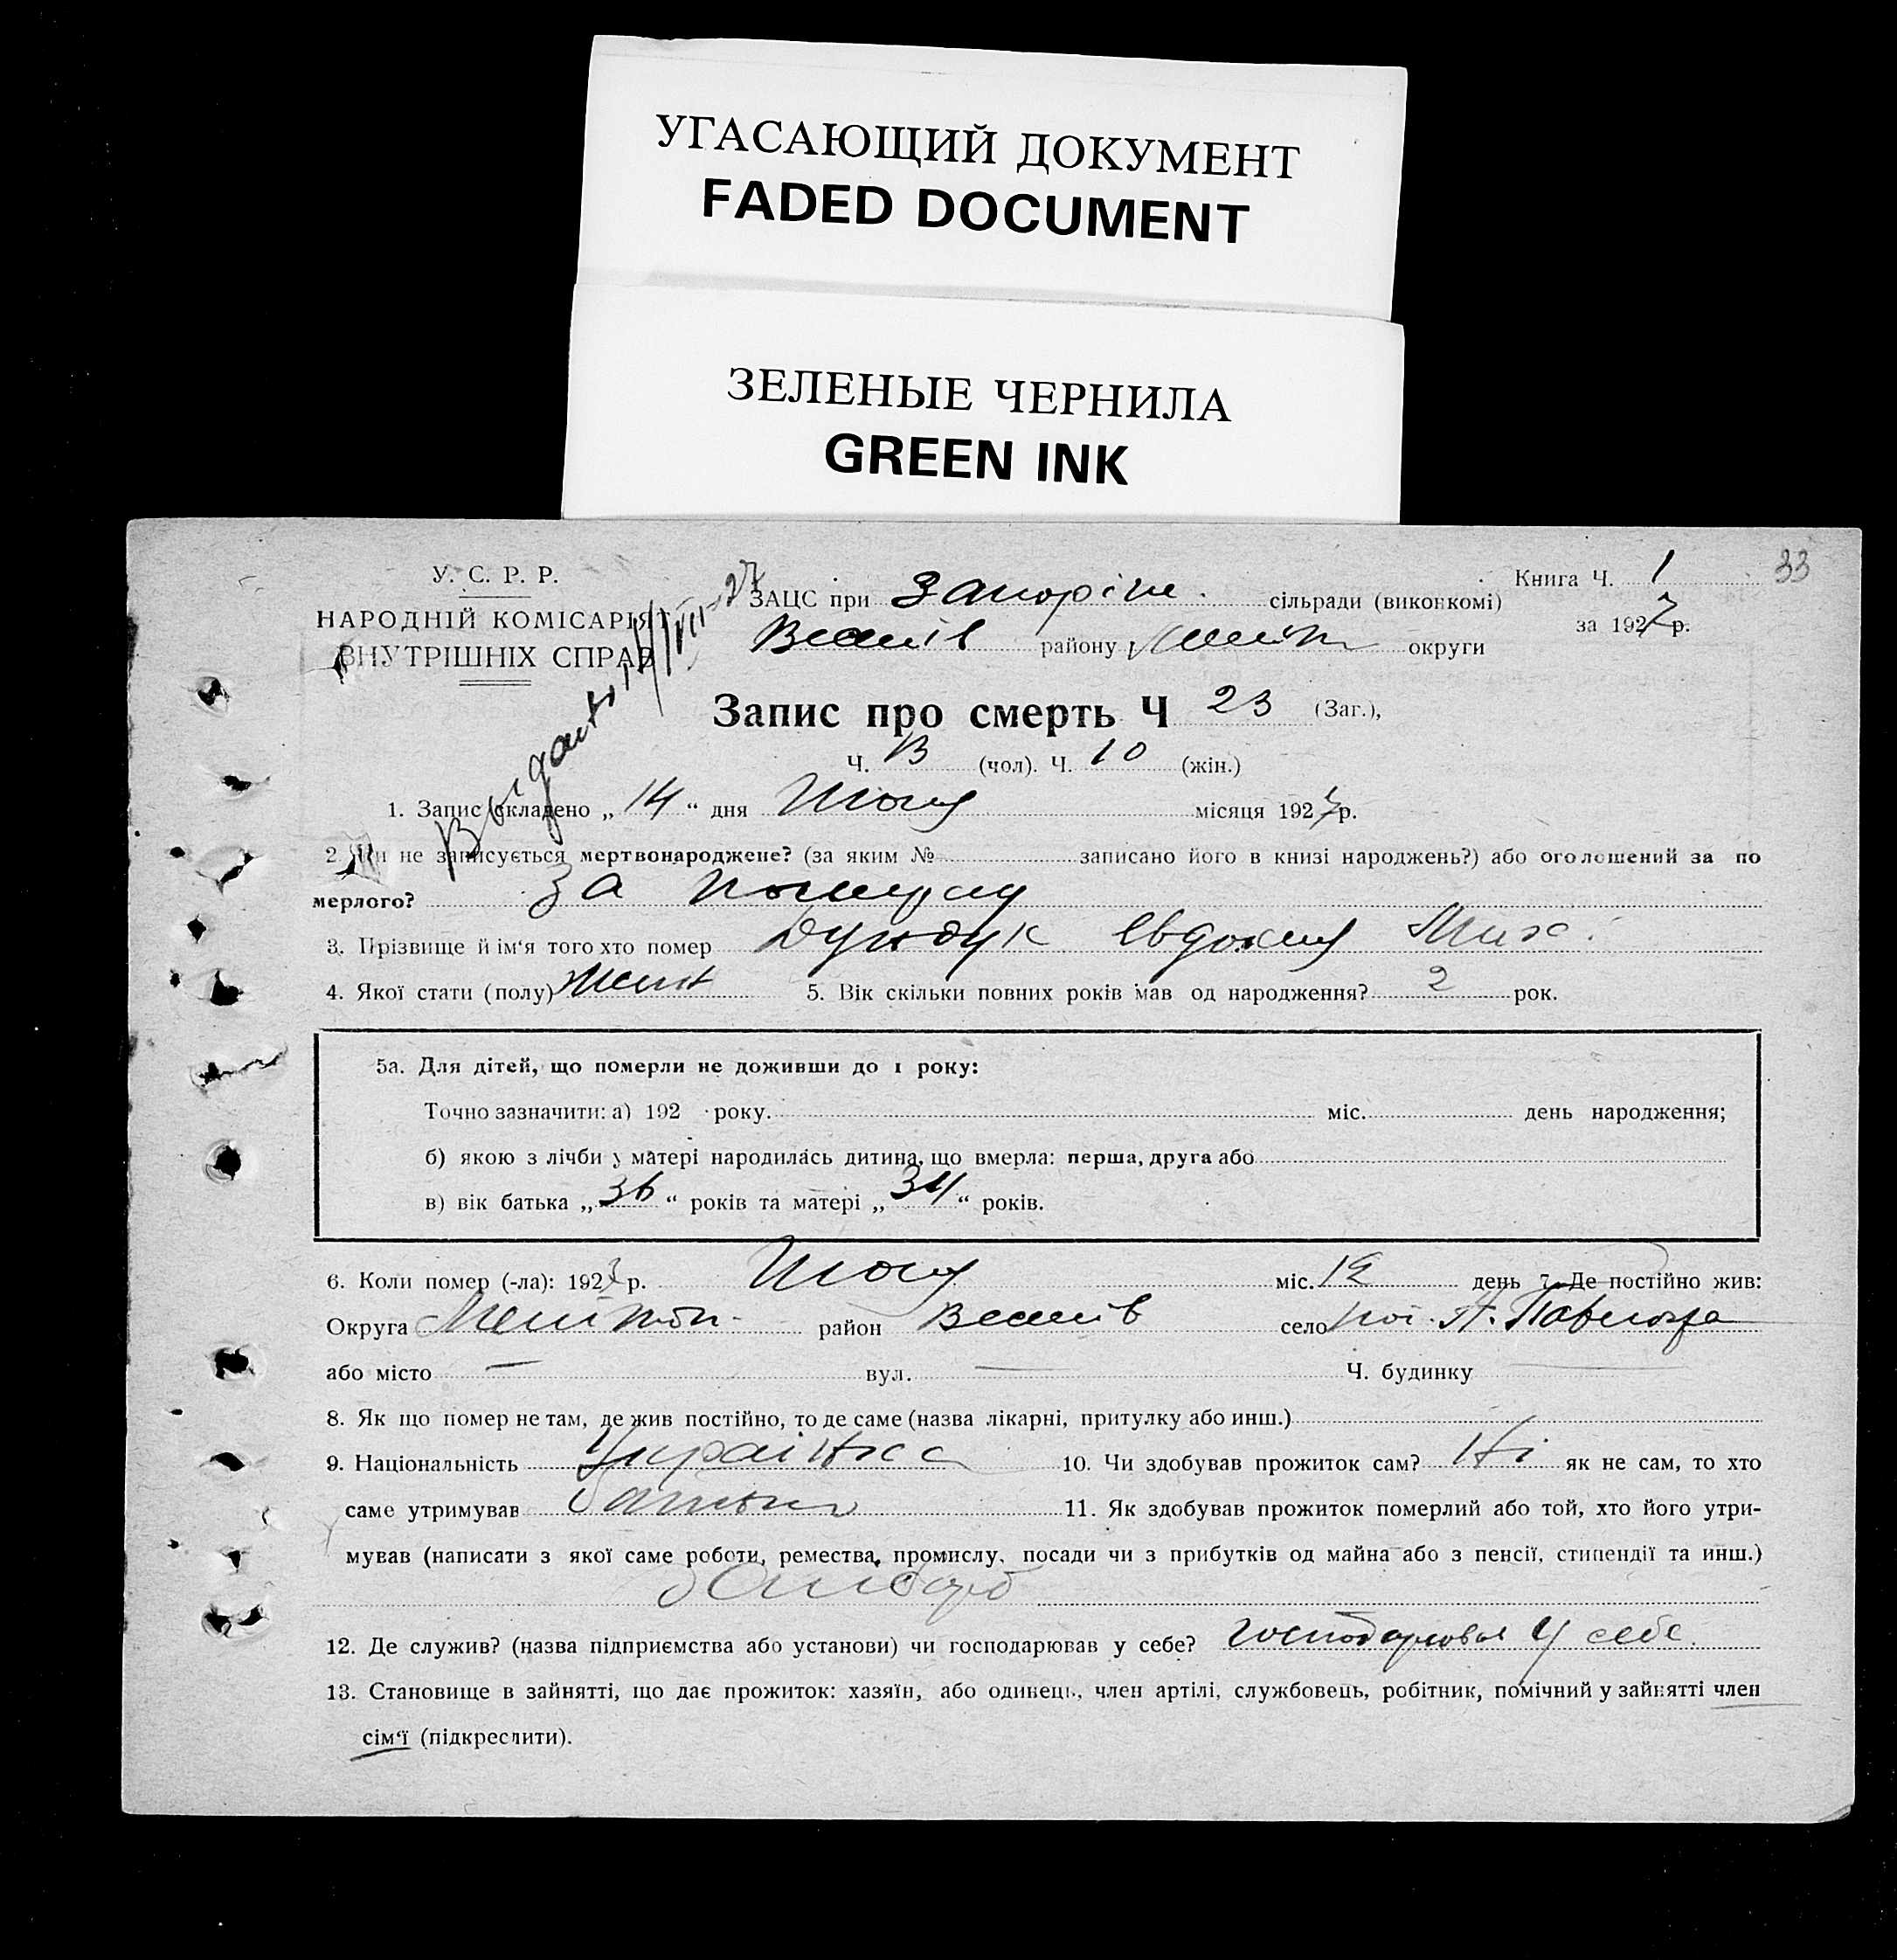 УГАСАЮЩИЙ ДОКУМЕНТ
FADED DOCUMENT
ЗЕЛЕНЫЕ ЧЕРНИЛА
GREEN INK
У. С. Р. Р.
НАРОДНІЙ КОМІСАРІЯТ
ВНУТРІШНІХ СПРАВ
Книга Ч. 1
33
ЗАЦС при сільради (виконкомі)
за 1927 р.
району округи
Запис про смерть Ч 23 (Заг.),
Ч. 13 (чол). Ч. 10 (жін.)
1. Запис складено „ 14 “ дня місяця 1927 р.
2. Чи не записується мертвонароджене? (за яким № записано його в книзі народжень?) або оголошений за по
мерлого? за
3. Прізвище й ім‘я того хто помер Дундук Мих.
4. Якої стати (полу) жин 5. Вік скільки повних років мав од народження? 2 рок.
5а. Для дітей, що померли не доживши до 1 року:
Точно зазначити: а) 192 року. міс. день народження;
б) якою з лічби у матері народилась дитина, що вмерла: перша, друга або
в) вік батька „ 36 “ років та матері „ 34 “ років.
6. Коли помер (-ла): 1927 р. міс. 12 день 7. Де постійно жив:
Округа район село
або місто — вул. — Ч. будинку —
8. Як що помер не там, де жив постійно, то де саме (назва лікарні, притулку або инш.)
9. Національність Українка 10. Чи здобував прожиток сам? Ні як не сам, то хто
саме утримував батько 11. Як здобував прожиток померлий або той, хто його утри-
мував (написати з якої саме роботи, ремества, промислу, посади чи з прибутків од майна або з пенсії, стипендії та инш.)
12. Де служив? (назва підприємства або установи) чи господарював у себе? господарював у себе.
13. Становище в зайнятті, що дає прожиток: хазяїн, або одинець, член артілі, службовець, робітник, помічний у зайнятті член
сім‘ї (підкреслити).